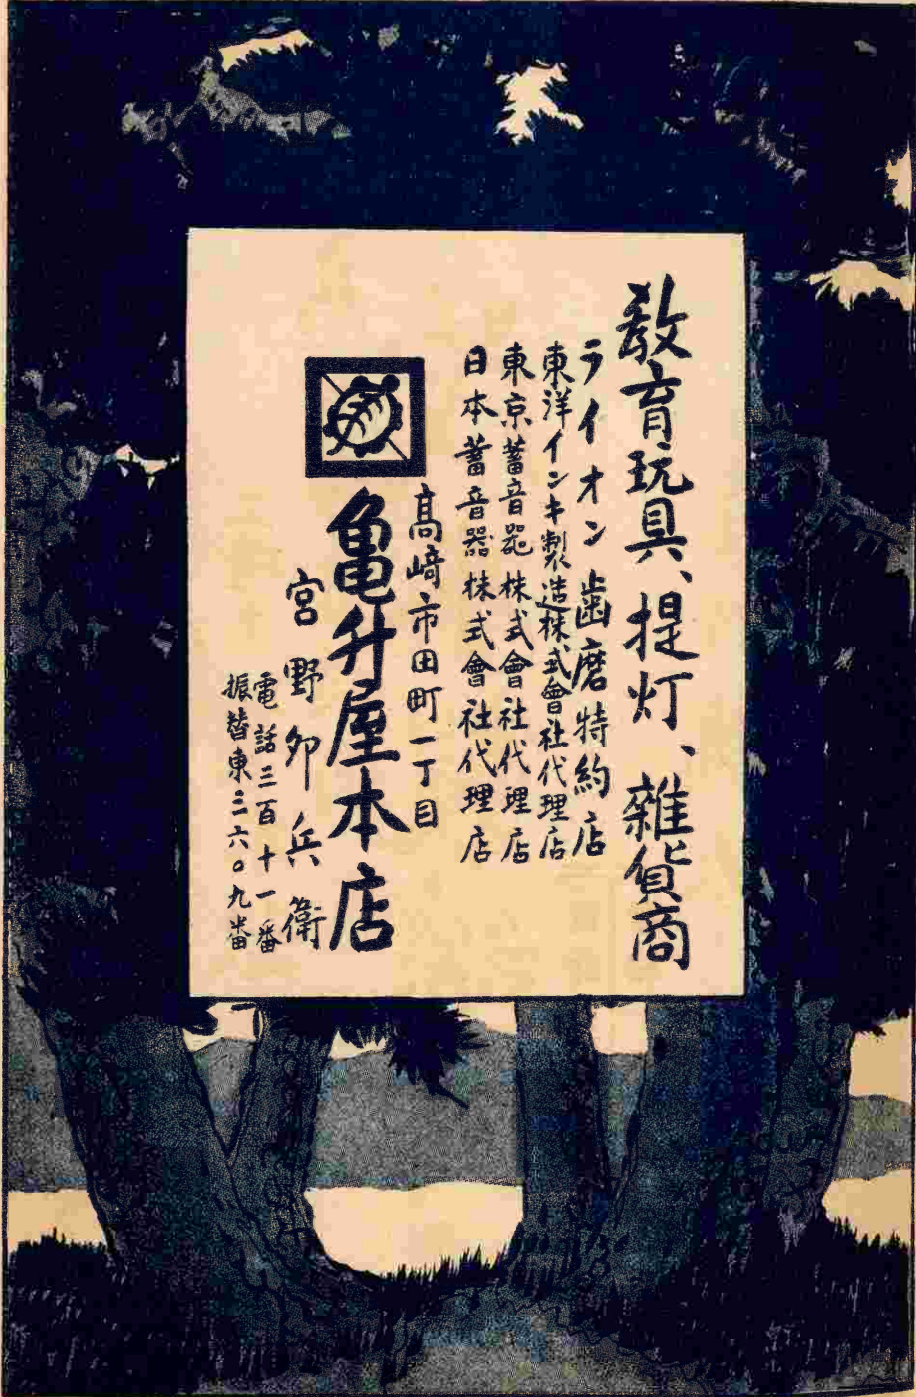 教育玩具、提灯、雑貨商
ライオン歯磨特約店
東洋インキ製造株式會社代理店
東京蓄音器株式會社代理店
日本蓄音器株式會社代理店
高﨑市田町一丁目
亀升屋本店
宮野卯兵衛
電話三百十一番
振替東三六〇九番